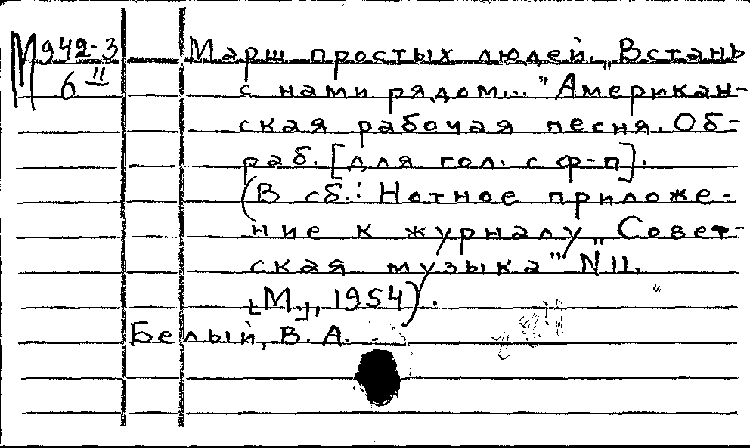 М 942-3 Марш простых людей. „Встань
6 II с нами рядом... " Американ-
ская рабочая песня. Об-
раб. [для гол. с ф-п].
(В сб.: Нотное приложе-
ние к журналу „Совет-
ская музыка" N 11.
[М.], 1954).
Белый, В. А.